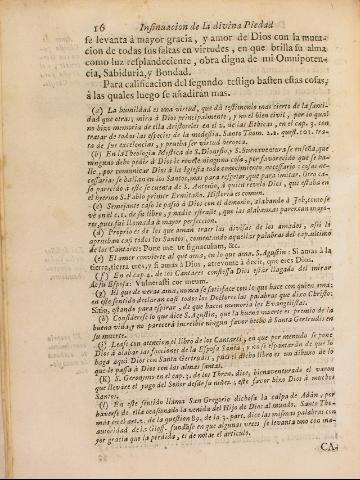 16 Insinuacion de la divina Piedad
se levanta à mayor gracia, y amor de Dios con la muta-
cion de todas sus faltas en virtudes, en que brilla su alma
como luz resplandeciente, obra digna de mi Omnipoten-
cia, Sabiduria, y Bondad.
Para calificacion del segundo testigo basten estas cosas,
à las quales luego se añadiran mas.
(a) La humildad es una virtud, que dà testimonio mas cierto de la santi-
dad que otras; mira à Dios principalmente, y no el bien civil, por lo qual
no hizo memoria de ella Aristoteles en el 2. de las Ethicas, en el cap. 3. con
tratar de todas las especies de la modestia. Santo Thom. 2.2. quest. 161. trata-
to de sus excelencias, y prueba ser virtud heroica.
(b) En la Theologia Mystica de S. Dionysio, y S. Buenaventura se enseña, que
ninguno debe pedir à Dios le revele ninguna cosa, por favorecido que se ha-
lle, por comunicar Dios à la Iglesia todo conocimiento necessario: cosas ne-
cessarias se hallan en los Santos, mas para respetar, que para imitar. Otro ca-
so parecido à este se cuenta de S. Antonio, à quien revelò Dios, que estaba en
el hyermo S. Pablo primer Ermitaño. Historia es comun.
(c) Semejante caso le passò à Dios con el demonio, alabando à Job, como se
vè en el c. 1. de su libro, y nadie estrañe, que las alabanzas parezcan mayo-
res, pues fuè llamada à mayor perfeccion.
(d) Proprio es de los que aman traer las divisas de los amados, assi lo
aprueban casi todos los Santos, comentando aquellas palabras del cap. ultimo
de los Cantares: Pone me ut signaculum, &c.
(e) El amor convierte al que ama, en lo que ama. S. Agustin: Si amas à la
tierra, tierra eres, y si amas à Dios, atrevome à decir, que eres Dios.
(f) En el cap. 4. de los Cantares confiessa Dios estàr llagado del mirar
de su Esposa: Vulnerasti cor meum.
(g) El que de veras ama, nunca se satisface con lo que hace con quien ama;
en este sentido declaran casi todos los Doctores las palabras que dixo Christo:
Sitio, estando para espirar, de que hacen memoria los Evangelistas.
(h) Considerese lo que dice S. Agustin, que la buena muerte es premio de la
buena vida, y no parecerà increible ningun favor hecho à Santa Gertrudis en
su muerte.
(i) Lease con atencion el libro de los Cantares, en que por menudo se pone
Dios à alabar las facciones de la Esposa Santa, y no se espantaràn de que lo
haga aqui Dios con Santa Gertrudis; pues el dicho libro es un dibuxo de lo
que le passa à Dios con las almas santas.
(K) S. Geronymo en el cap. 3. de los Thren. dice, bienaventurado el varon
que llevàre el yugo del Señor desde su niñez, este favor hizo Dios à muchos
Santos.
(l) En este sentido llama San Gregorio dichosa la culpa de Adàn, por
haverse de ella ocasionado la venida del Hijo de Dios al mundo. Santo Tho-
màs en el art. 2. de la question 89. de la 3. part. dice las mismas palabras con
autoridad de la Gloss. fundase en que algunas veces se levanta uno con ma-
yor gracia que la perdida, es de notar el articulo.
CA-